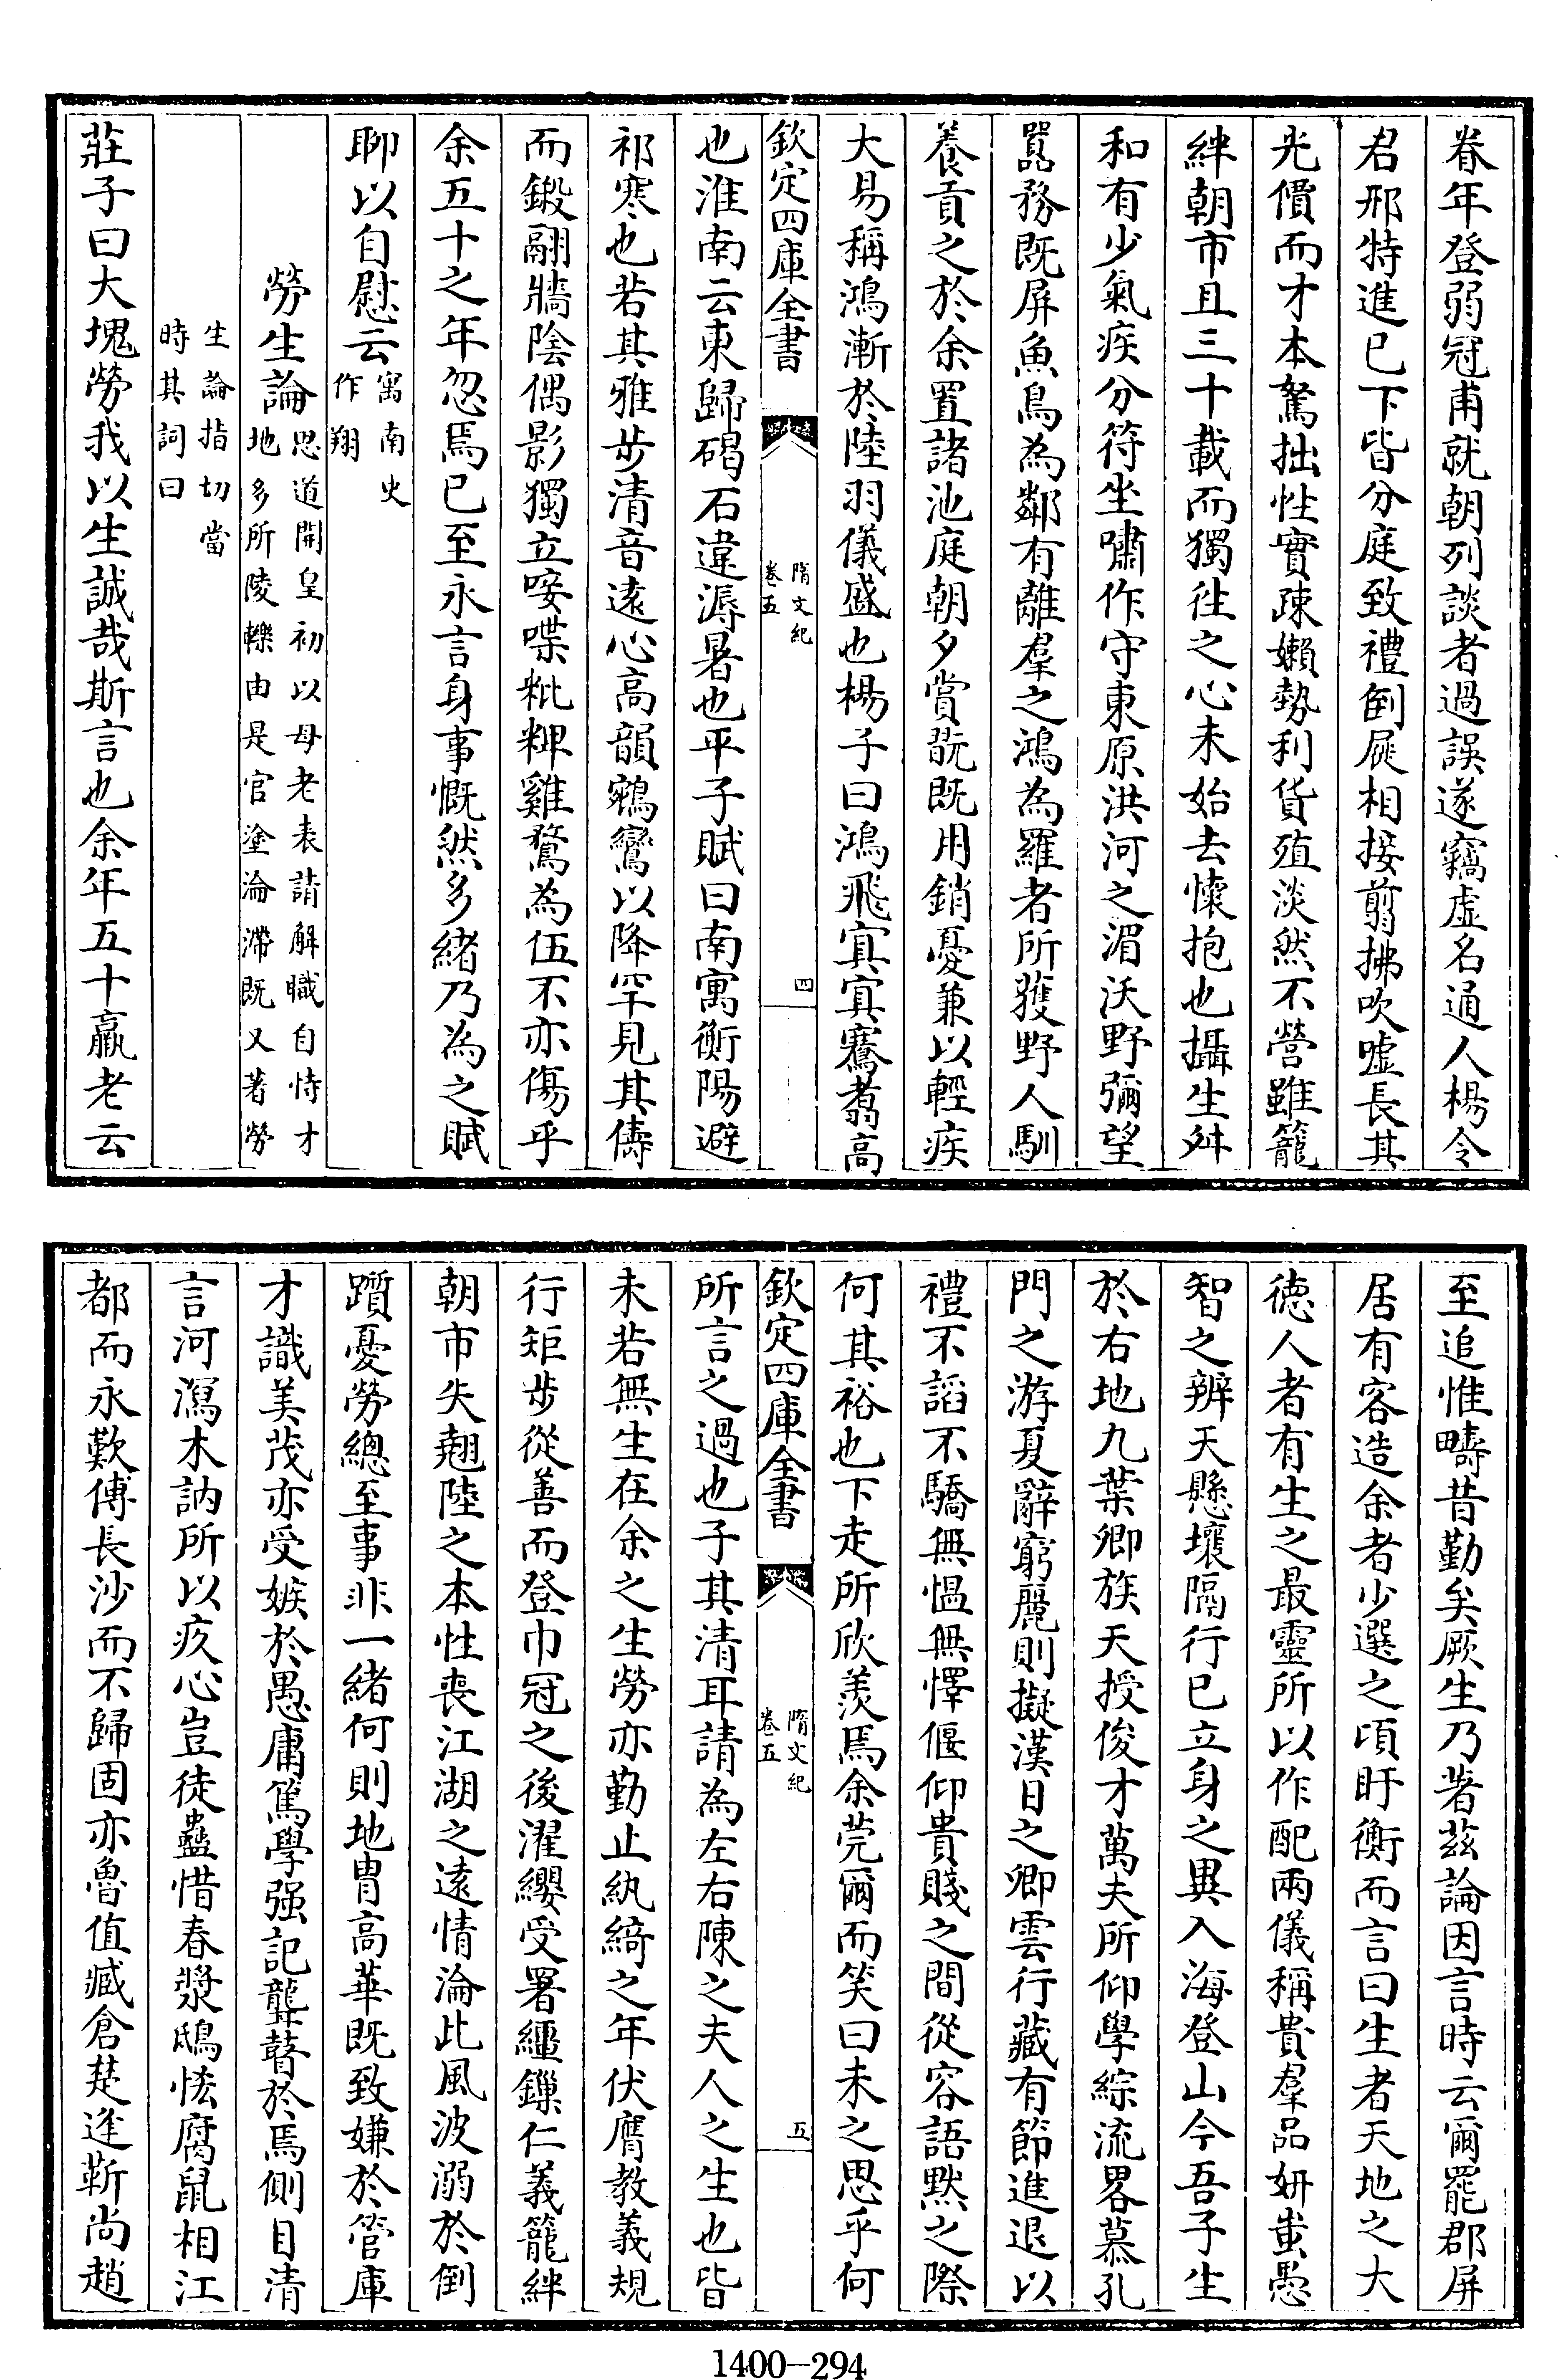 眷年登弱冠甫就朝列談者過誤遂竊虚名通人楊令
君邢特進已下皆分庭致禮倒屣相接翦拂吹嘘長其
光價而才本駑拙性實疎嬾勢利貨殖淡然不營雖籠
絆朝市且三十載而獨往之心未始去懷抱也攝生舛
和有少氣疾分符坐嘯作守東原洪河之湄沃野彌望
囂務既屏魚鳥為鄰有離羣之鴻為羅者所獲野人馴
養貢之於余置諸池庭朝夕賞翫既用銷憂兼以輕疾
大易稱鴻漸於陸羽儀盛也楊子曰鴻飛寘寘騫翥高
欽定四庫全書
隋文紀
卷五
四
也淮南云東歸碣石違溽暑也平子賦曰南寓衡陽避
祁寒也若其雅步清音遠心高韻鵷鸞以降罕見其儔
而鎩翮牆陰偶影獨立唼喋粃稗雞鶩為伍不亦傷乎
余五十之年忽焉已至永言身事慨然多緒乃為之賦
聊以自慰云寓南史
作翔
勞生論思道開皇初以母老表請解職自恃才
地多所陵轢由是官塗淪滯既又著勞
生論指切當
時其詞曰
莊子曰大塊勞我以生誠哉斯言也余年五十羸老云
至追惟疇昔勤矣厥生乃著茲論因言時云爾罷郡屏
居有客造余者少選之頃盱衡而言曰生者天地之大
徳人者有生之最靈所以作配兩儀稱貴羣品妍蚩愚
智之辨天懸壤隔行已立身之異入海登山今吾子生
於右地九葉卿族天授俊才萬夫所仰學綜流畧慕孔
門之游夏辭窮麗則擬漢日之卿雲行藏有節進退以
禮不謟不驕無愠無懌偃仰貴賤之間從容語默之際
何其裕也下走所欣羨焉余莞爾而笑曰未之思乎何
欽定四庫全書
隋文紀
卷五
五
所言之過也子其清耳請為左右陳之夫人之生也皆
未若無生在余之生勞亦勤止紈綺之年伏膺教義規
行矩步從善而登巾冠之後濯纓受署繮鏁仁義籠絆
朝市失翹陸之本性喪江湖之遠情淪此風波溺於倒
躓憂勞總至事非一緒何則地胄高華既致嫌於管庫
才識美茂亦受嫉於愚庸篤學强記聾瞽於焉側目清
言河瀉木訥所以疚心豈徒蠱惜春漿鴟恡腐鼠相江
都而永歎傅長沙而不歸固亦魯值臧倉楚逢靳尚趙
1400-294